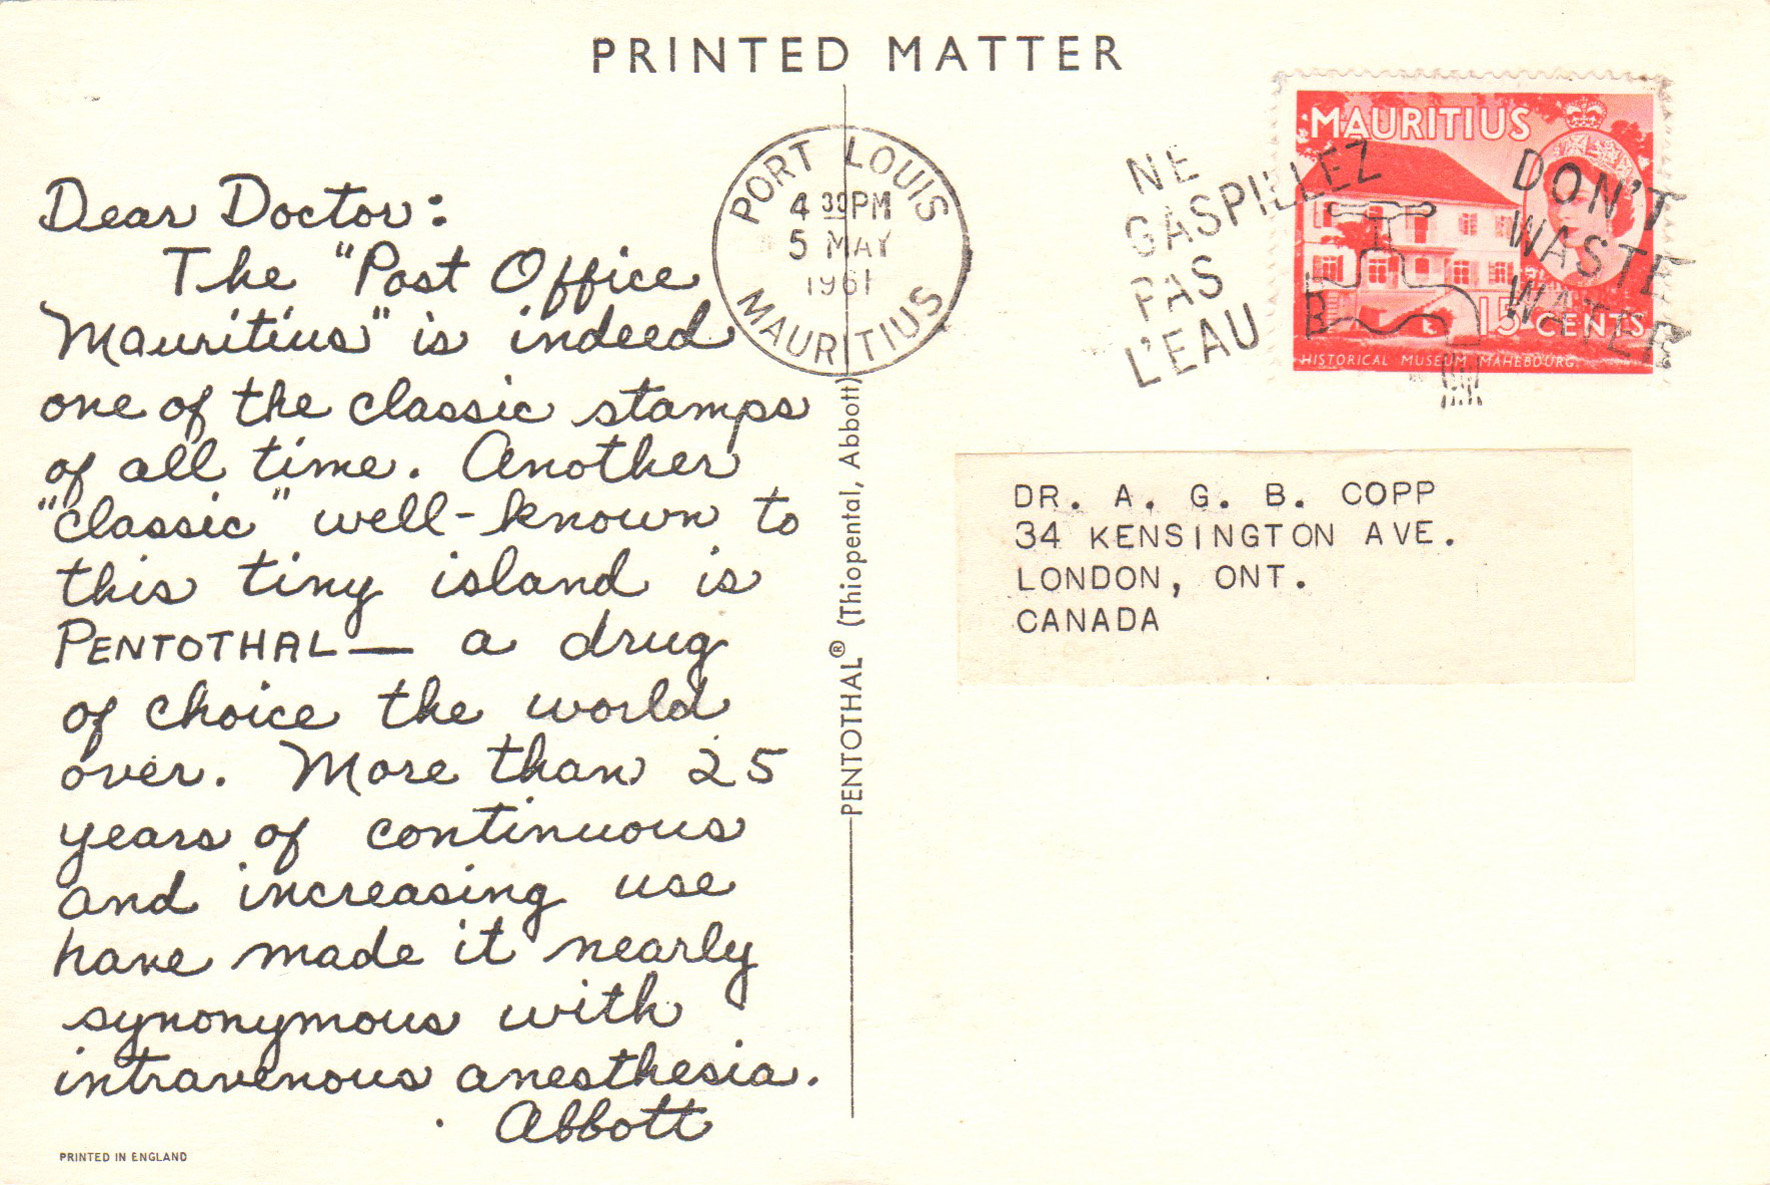 PRINTED MATTER
Dear Doctor:
The "Post Office
Mauritius" is indeed
one of the classic stamps
of all time. Another
"classic" well-known to
this tiny island is
PENTOTHAL — a drug
of choice the world
over. More than 25
years of continuous
and increasing use
have made it nearly
synonymous with
intravenous anesthesia.
Abbott
PRINTED IN ENGLAND
PENTOTHAL® (Thiopental, Abbott)
PORT LOUIS
4 30PM
5 MAY
1961
MAURITIUS
NE
GASPILLEZ
PAS
L'EAU
DON'T
WASTE
WATER
MAURITIUS
15 CENTS
HISTORICAL MUSEUM MAHEBOURG
DR. A. G. B. COPP
34 KENSINGTON AVE.
LONDON, ONT.
CANADA